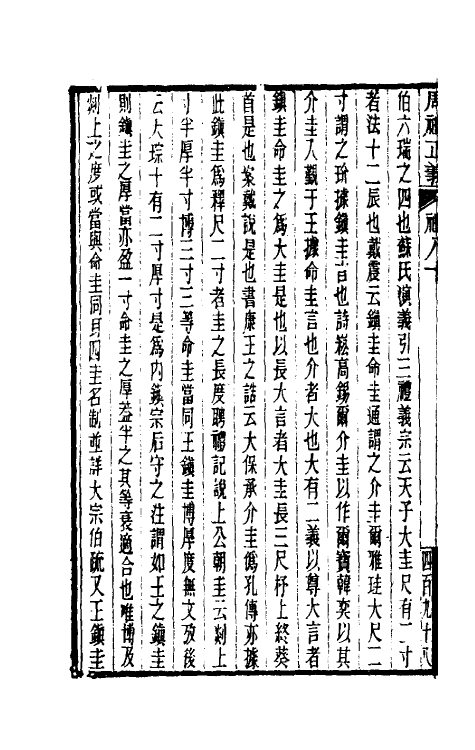 周禮正義 禮八十 四百九十八
伯六瑞之四也蘇氏演義引三禮義宗云天子大圭尺有二寸
者法十二辰也戴震云鎮圭命圭通謂之介圭爾雅珪大尺二
寸謂之玠據鎮圭言也詩崧高錫爾介圭以作爾寶韓奕以其
介圭入覲于王據命圭言也介者大也大有二義以尊大言者
鎮圭命圭之為大圭是也以長大言者大圭長三尺杼上終葵
首是也案戴說是也書康王之誥云大保承介圭僞孔傳亦據
此鎮圭爲釋尺二寸者圭之長度聘禮記說上公朝圭云剡上
寸半厚半寸博三寸三等命圭當同王鎮圭博厚度無文攷後
云大琮十有二寸厚寸是爲內鎮宗后守之注謂如王之鎮圭
則鎮圭之厚當亦盈一寸命圭之厚葢半之其等衰適合也唯博及
剡上之度或當與命圭同耳四圭名制並詳大宗伯疏又王鎮圭